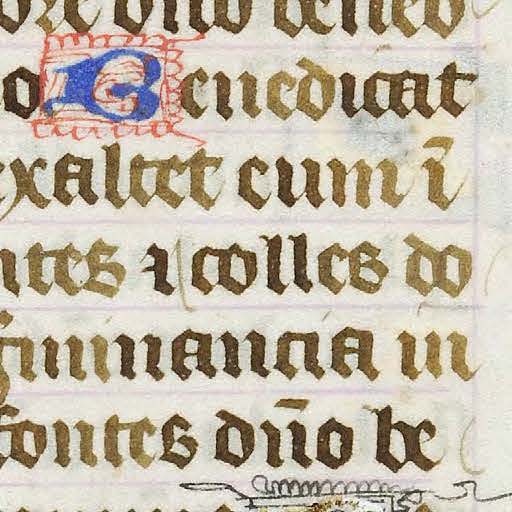 dño bened
Benedicat
exaltet cum ī
ntes ⁊ colles do
minancia in
fontes dño be